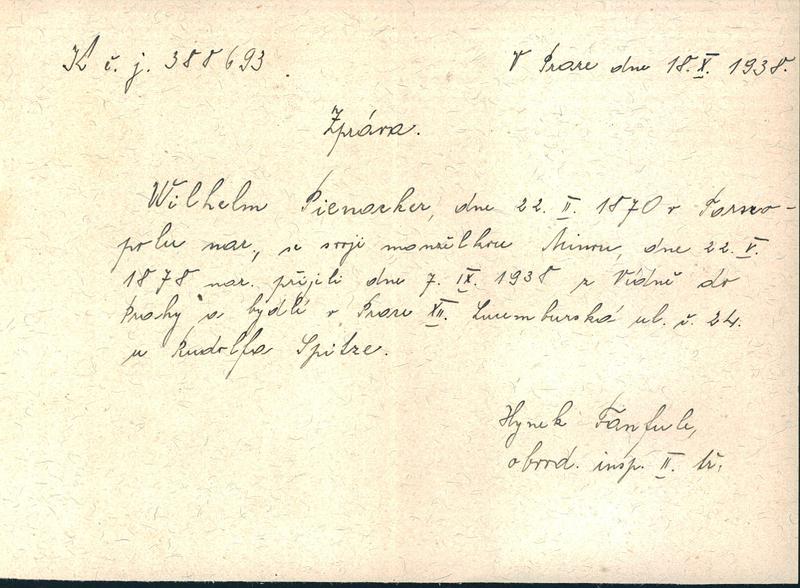 K č. j. 388693
V Praze dne 18. X. 1938.
Zpráva.
Wilhelm Pienocker, dne 22. II. 1870 v Tarno-
polu nar., se svojí manželkou Minou, dne 22. V.
1878 nar. přijeli dne 7. IX. 1938 z Vídně do
Prahy a bydlí v Praze XII. Lucemburská ul. č. 24.
u Rudolfa Spitze.
Hynek Fanfule,
obvod. insp. II. tř.